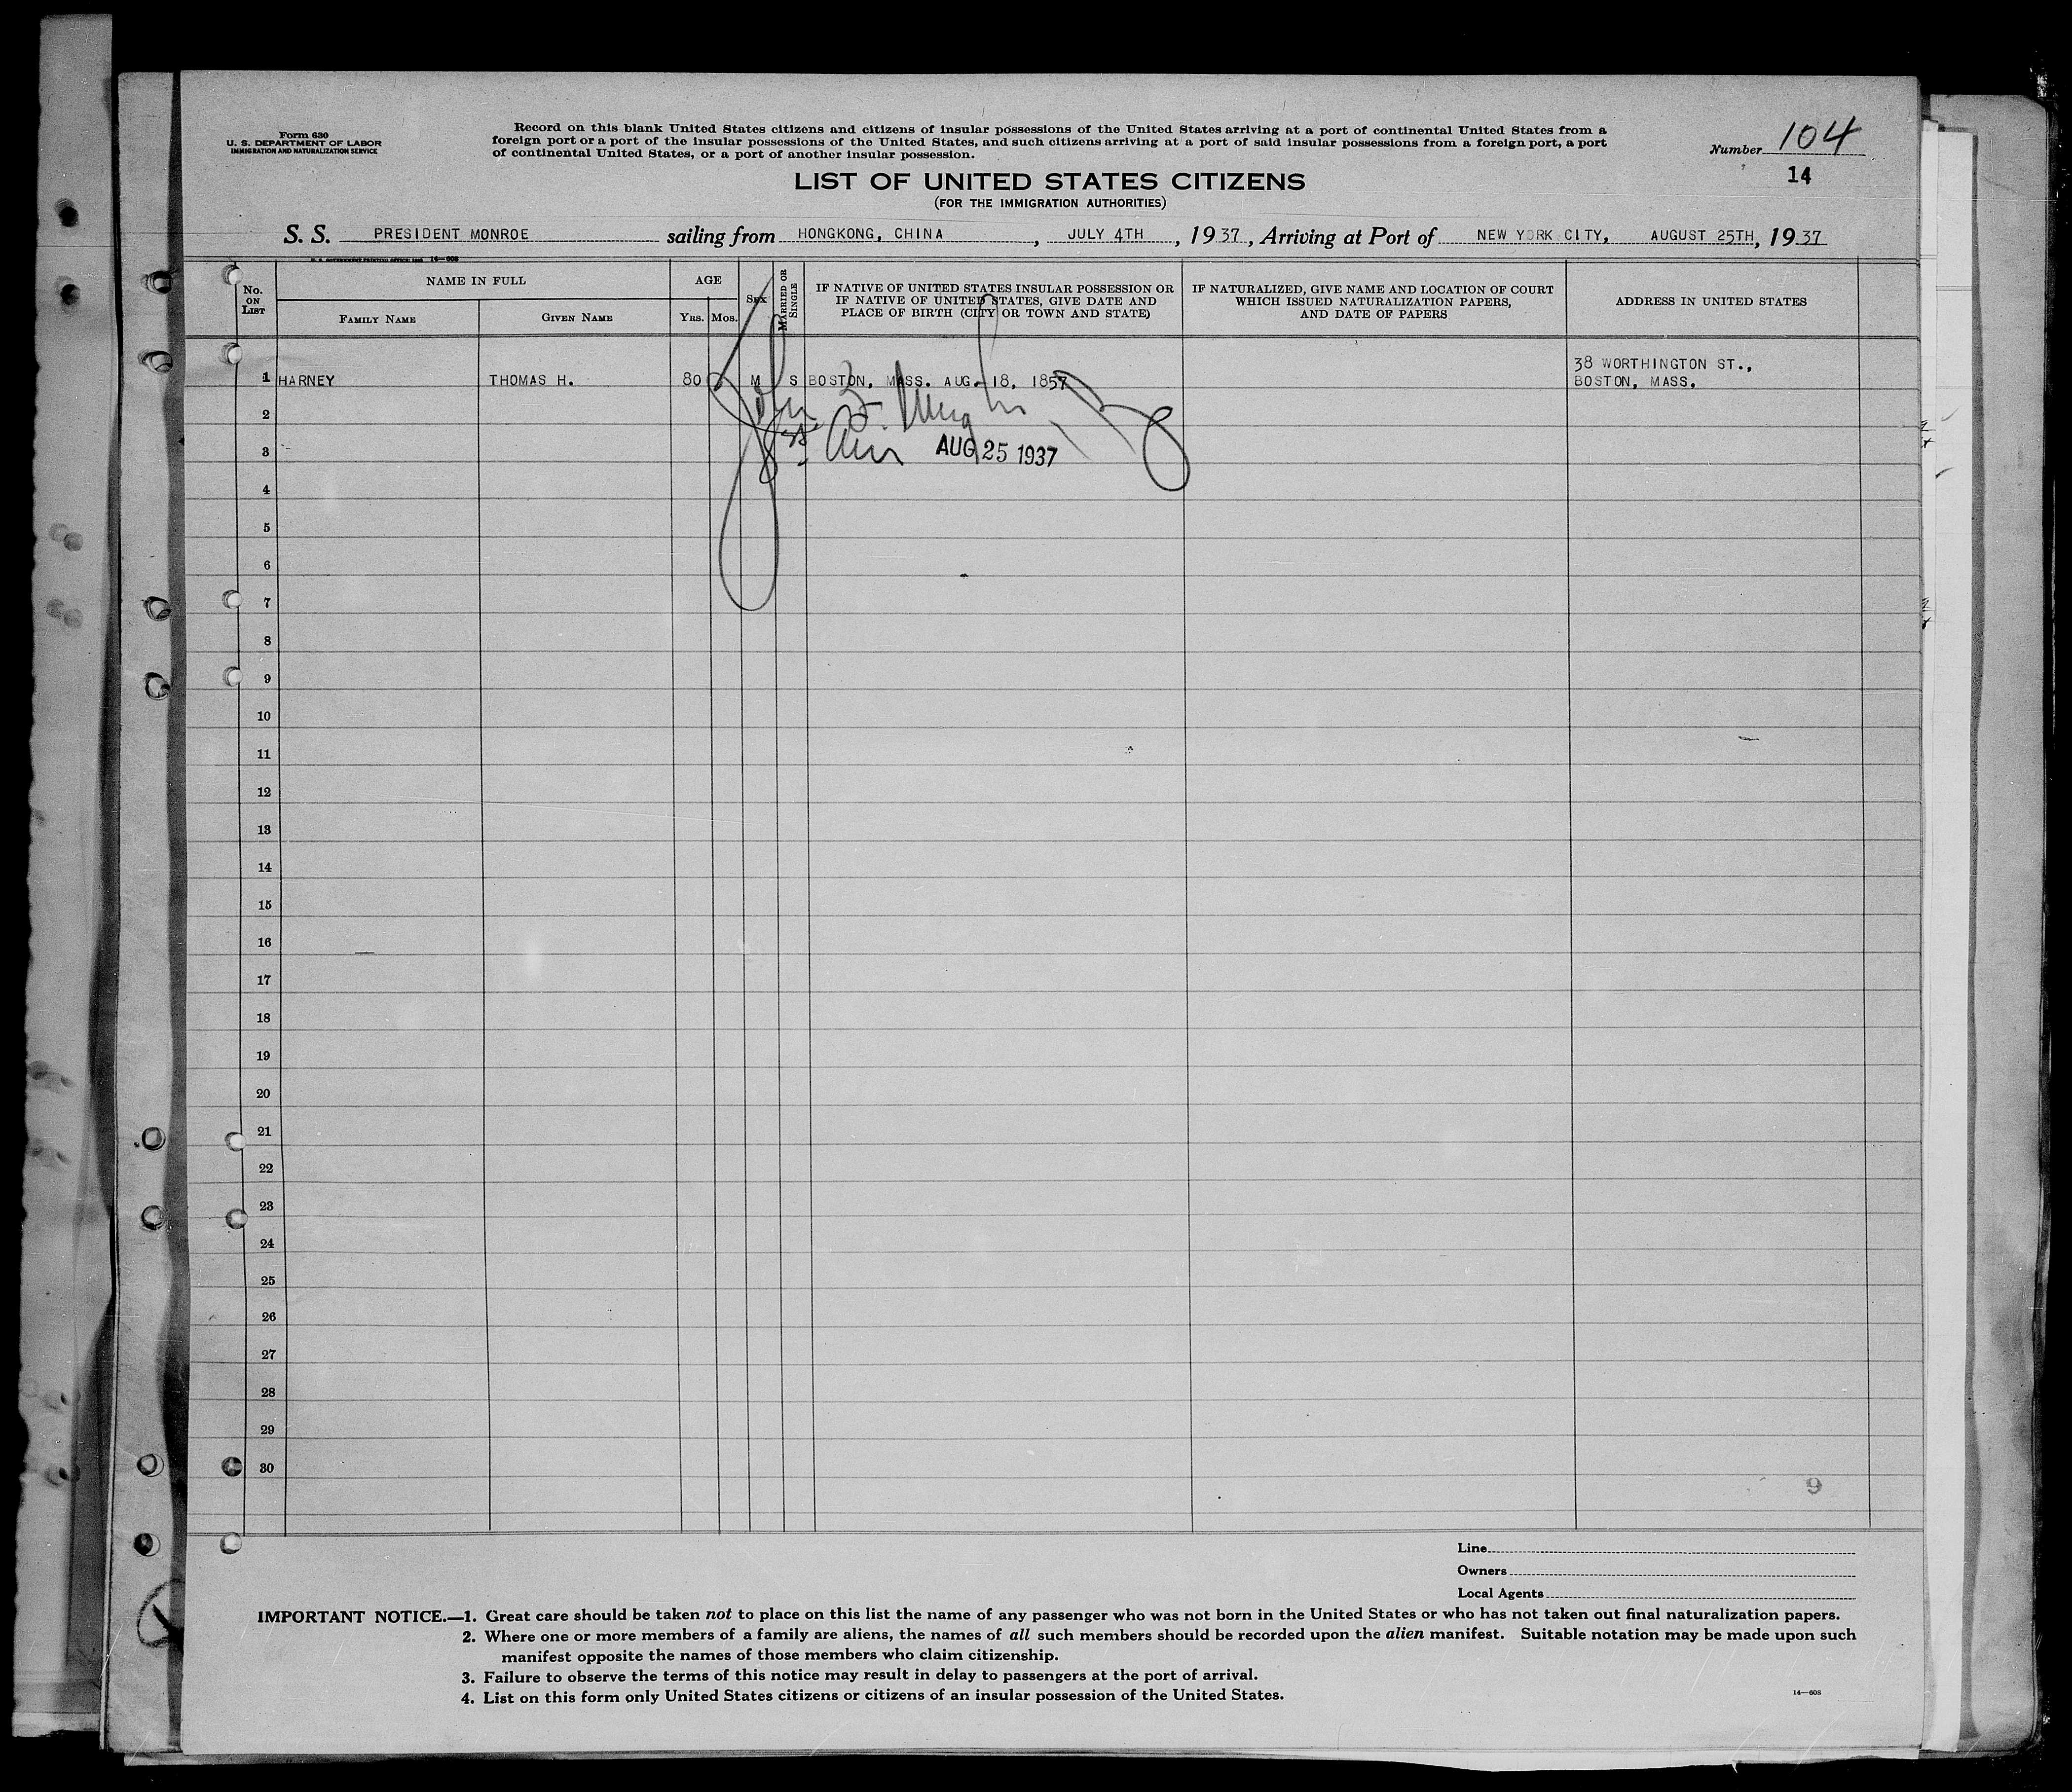 Form 630
U. S. DEPARTMENT OF LABOR
IMMIGRATION AND NATURALIZATION SERVICE
Record on this blank United States citizens and citizens of insular possessions of the United States arriving at a port of continental United States from a
foreign port or a port of the insular possessions of the United States, and such citizens arriving at a port of said insular possessions from a foreign port, a port
of continental United States, or a port of another insular possession.
Number 104
14
LIST OF UNITED STATES CITIZENS
(FOR THE IMMIGRATION AUTHORITIES)
S. S. PRESIDENT MONROE sailing from HONGKONG, CHINA, JULY 4TH, 1937, Arriving at Port of NEW YORK CITY, AUGUST 25TH, 1937
No. ON LIST
NAME IN FULL
FAMILY NAME
GIVEN NAME
AGE
YRS.
MOS.
SEX
MARRIED OR SINGLE
IF NATIVE OF UNITED STATES INSULAR POSSESSION OR
IF NATIVE OF UNITED STATES, GIVE DATE AND
PLACE OF BIRTH (CITY OR TOWN AND STATE)
IF NATURALIZED, GIVE NAME AND LOCATION OF COURT
WHICH ISSUED NATURALIZATION PAPERS,
AND DATE OF PAPERS
ADDRESS IN UNITED STATES
38 WORTHINGTON ST.,
1 HARNEY THOMAS H. 80 M S BOSTON, MASS. AUG. 18, 1857 BOSTON, MASS.
2
3 AUG 25 1937
4
5
6
7
8
9
10
11
12
13
14
15
16
17
18
19
20
21
22
23
24
25
26
27
28
29
30
9
Line
Owners
Local Agents
IMPORTANT NOTICE.—1. Great care should be taken not to place on this list the name of any passenger who was not born in the United States or who has not taken out final naturalization papers.
2. Where one or more members of a family are aliens, the names of all such members should be recorded upon the alien manifest. Suitable notation may be made upon such
manifest opposite the names of those members who claim citizenship.
3. Failure to observe the terms of this notice may result in delay to passengers at the port of arrival.
4. List on this form only United States citizens or citizens of an insular possession of the United States.
14—608